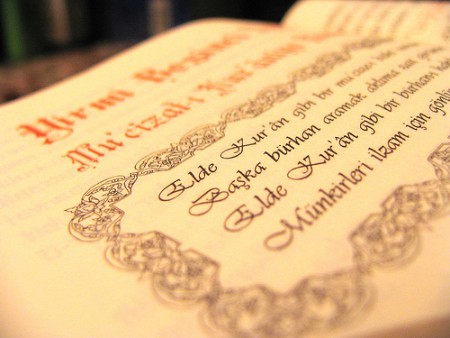 Yirmi Beşinci
Mu'cizat-ı Kur'aniye
Elde Kur'ân gibi bir
Başka bürhan aramak aklıma zaid
Elde Kur'ân gibi bir bürhan-ı
Münkirleri ilzam için gönlüm